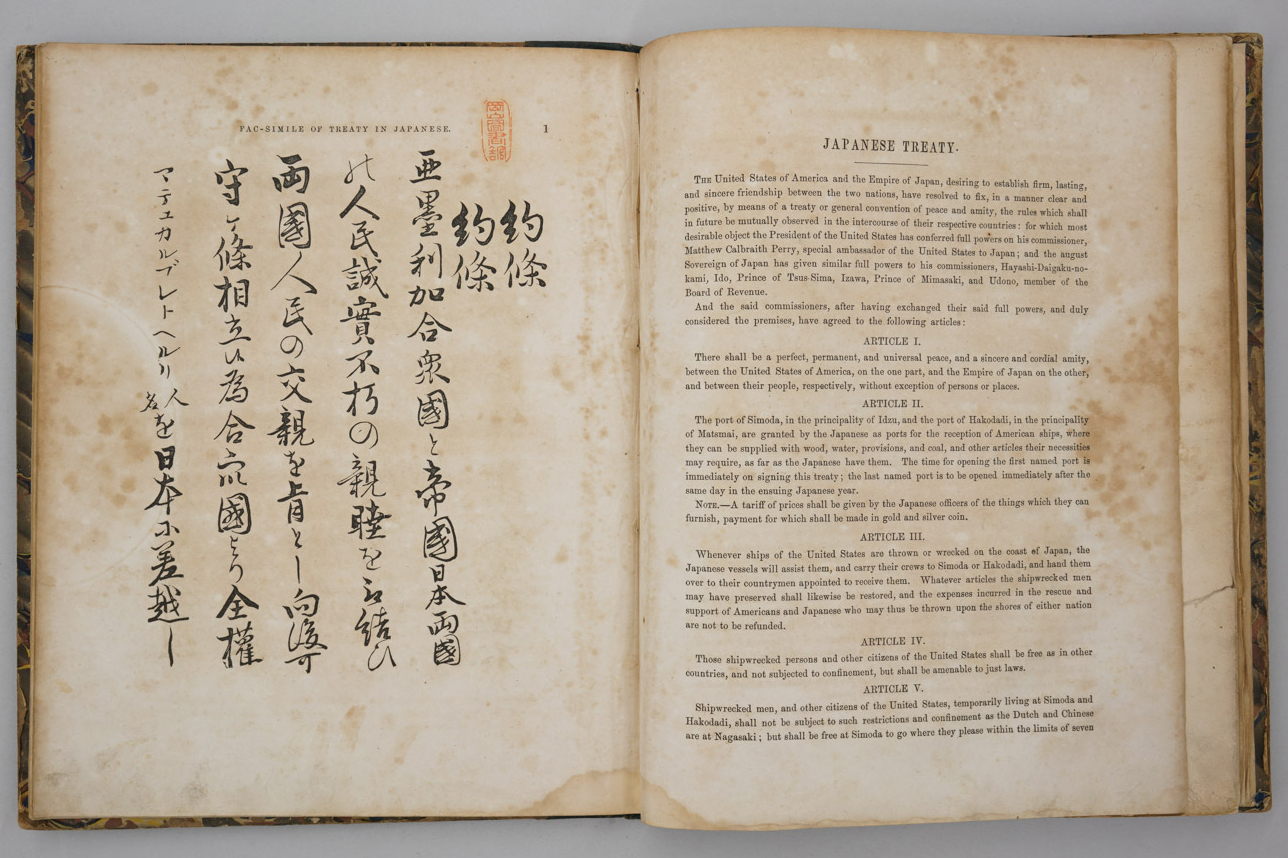 FAC-SIMILE OF TREATY IN JAPANESE.
1
約條
約條
亜墨利加合衆國と帝國日本両國
の人民誠實不朽の親睦を取結ひ
両國人民の交親を旨とし向後可
守ケ條相立候為合衆國より全權
マテユカルブレトヘルリ人名を日本に差越し
JAPANESE TREATY.
THE United States of America and the Empire of Japan, desiring to establish firm, lasting,
and sincere friendship between the two nations, have resolved to fix, in a manner clear and
positive, by means of a treaty or general convention of peace and amity, the rules which shall
in future be mutually observed in the intercourse of their respective countries: for which most
desirable object the President of the United States has conferred full powers on his commissioner,
Matthew Calbraith Perry, special ambassador of the United States to Japan; and the august
Sovereign of Japan has given similar full powers to his commissioners, Hayashi-Daigaku-no-
kami, Ido, Prince of Tsus-Sima, Izawa, Prince of Mimasaki, and Udono, member of the
Board of Revenue.
And the said commissioners, after having exchanged their said full powers, and duly
considered the premises, have agreed to the following articles:
ARTICLE I.
There shall be a perfect, permanent, and universal peace, and a sincere and cordial amity,
between the United States of America, on the one part, and the Empire of Japan on the other,
and between their people, respectively, without exception of persons or places.
ARTICLE II.
The port of Simoda, in the principality of Idzu, and the port of Hakodadi, in the principality
of Matsmai, are granted by the Japanese as ports for the reception of American ships, where
they can be supplied with wood, water, provisions, and coal, and other articles their necessities
may require, as far as the Japanese have them. The time for opening the first named port is
immediately on signing this treaty; the last named port is to be opened immediately after the
same day in the ensuing Japanese year.
NOTE.—A tariff of prices shall be given by the Japanese officers of the things which they can
furnish, payment for which shall be made in gold and silver coin.
ARTICLE III.
Whenever ships of the United States are thrown or wrecked on the coast of Japan, the
Japanese vessels will assist them, and carry their crews to Simoda or Hakodadi, and hand them
over to their countrymen appointed to receive them. Whatever articles the shipwrecked men
may have preserved shall likewise be restored, and the expenses incurred in the rescue and
support of Americans and Japanese who may thus be thrown upon the shores of either nation
are not to be refunded.
ARTICLE IV.
Those shipwrecked persons and other citizens of the United States shall be free as in other
countries, and not subjected to confinement, but shall be amenable to just laws.
ARTICLE V.
Shipwrecked men, and other citizens of the United States, temporarily living at Simoda and
Hakodadi, shall not be subject to such restrictions and confinement as the Dutch and Chinese
are at Nagasaki; but shall be free at Simoda to go where they please within the limits of seven